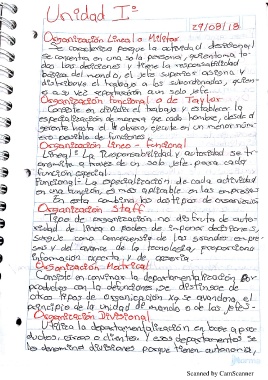 Unidad I°
29/08/18
Organización Lineal o Militar
Se caracteriza porque la actividad decisional
se concentra en una sola persona, quien toma to-
das las decisiones y tiene la responsabilidad
básica del mando, el jefe superior asigna y
distribuye el trabajo a los subordinados, quien-
es a su vez reportarán a un solo jefe.
Organización Funcional o de Taylor
Consiste en dividir el trabajo y establecer la
especialización de manera que cada hombre, desde el
gerente hasta el obrero, ejecute un menor núm-
ero posible de funciones.
Organización Línea - funcional
Lineal: La Responsabilidad y autoridad se tr-
ansmite a través de un solo jefe para cada
función especial
Funcional: La especialización de cada actividad
en una función, es más aplicable en las empresas
En esta combina los dos tipos de organización
Organización Staff
Tipo de organización no disfruta de auto-
ridad de línea o poder de imponer decisiones,
surgue como consecuencia de las grandes empre-
sas y del avance de la tecnología proporciona
información experta, y de asesoría.
Organización Matricial
Consiste en combinar la departamentalización por
productos con la de funciones, se distingue de
otros tipos de organización
principio de la unidad de mando o de los jefes.
Organización Divisional
Utiliza la departamentalización en base a pro-
ductos, áreas o clientes y esos departamentos se
les denomina divisiones porque tienen autonomía,
Scanned by CamScanner